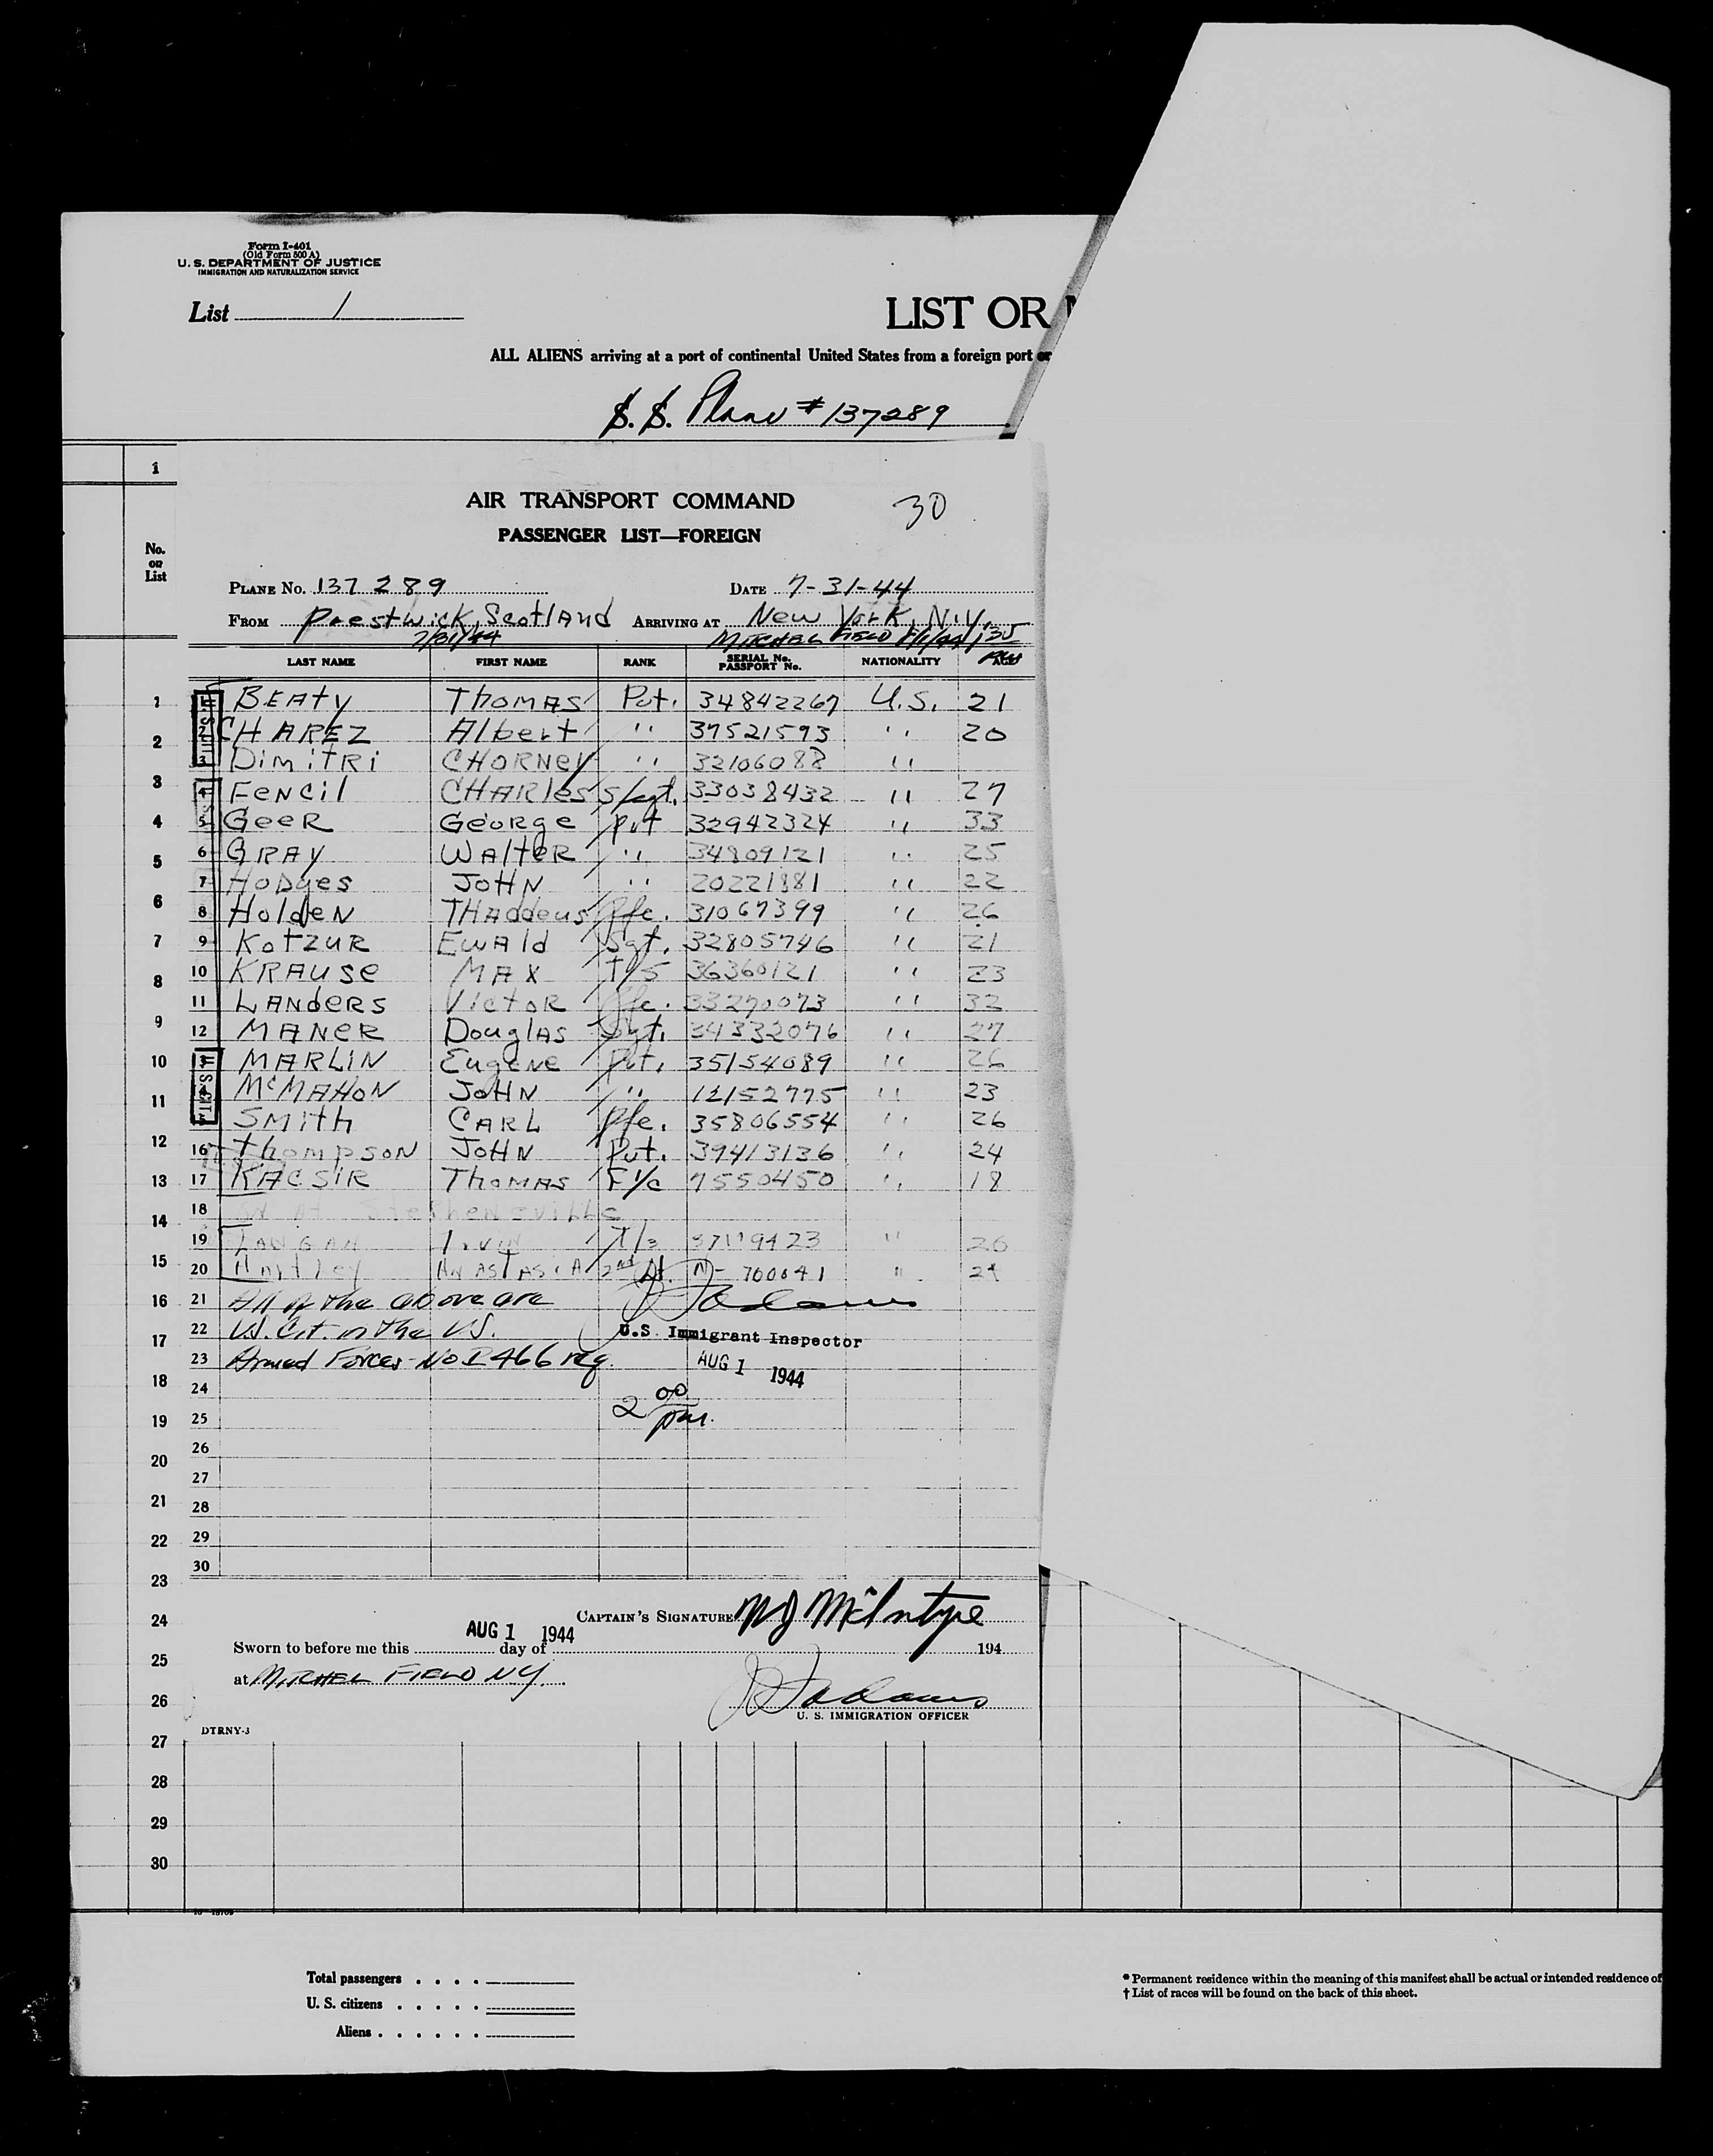 Form I-401
(Old Form 500 A)
U. S. DEPARTMENT OF JUSTICE
IMMIGRATION AND NATURALIZATION SERVICE
List 1
LIST OR
ALL ALIENS arriving at a port of continental United States from a foreign port or
S. S. Plane # 137289
1
AIR TRANSPORT COMMAND
30
PASSENGER LIST—FOREIGN
No.
on
List
PLANE NO. 137289 DATE 7-31-44
FROM Prestwick, Scotland ARRIVING AT New York, N.Y.
7/31/44 MITCHEL FIELD 8/1/44 135
LAST NAME FIRST NAME RANK SERIAL No. PASSPORT No. NATIONALITY
1 BEATY THOMAS Pvt. 34842267 U.S. 21
2 CHAREZ Albert " 37521593 " 20
3 DIMITRI CHORNEY " 32106088 "
4 FENCIL CHARLES S/Sgt. 33038432 " 27
5 GEER GEORGE Pvt 32942324 " 33
6 GRAY WALTER " 34809121 " 25
7 HODGES JOHN " 20221881 " 22
8 HOLDEN THADDEUS Pfc. 31067399 " 26
9 KOTZUR EWALD Sgt. 32805746 " 21
10 KRAUSE MAX T/5 36360121 " 23
11 LANDERS VICTOR Pfc. 33290073 " 32
12 MANER DOUGLAS Sgt. 34332076 " 27
13 MARLIN EUGENE Pvt. 35154089 " 26
McMAHON JOHN " 12152775 " 23
SMITH CARL Pfc. 35806554 " 26
16 THOMPSON JOHN Pvt. 39413136 " 24
17 KACSIR THOMAS F1/c 7550450 " 18
18 ON AT Stephenville
19 IRVIN T/3 37119423 " 26
20 ANASTASIA 2nd Lt. N-700641 "
21 All of the above are J Adams
22 U.S. Cit. in the U.S. U.S. Immigrant Inspector
23 Armed Forces - No I 466 req. AUG 1 1944
24 2 00
25 pm.
26
27
28
29
30
CAPTAIN'S SIGNATURE N J McIntyre
AUG 1 1944
Sworn to before me this day of 194
at MITCHEL FIELD NY
J Adams
U. S. IMMIGRATION OFFICER
DTRNY-3
1
2
3
4
5
6
7
8
9
10
11
12
13
14
15
16
17
18
19
20
21
22
23
24
25
26
27
28
29
30
Total passengers
U. S. citizens
Aliens
* Permanent residence within the meaning of this manifest shall be actual or intended residence of
† List of races will be found on the back of this sheet.